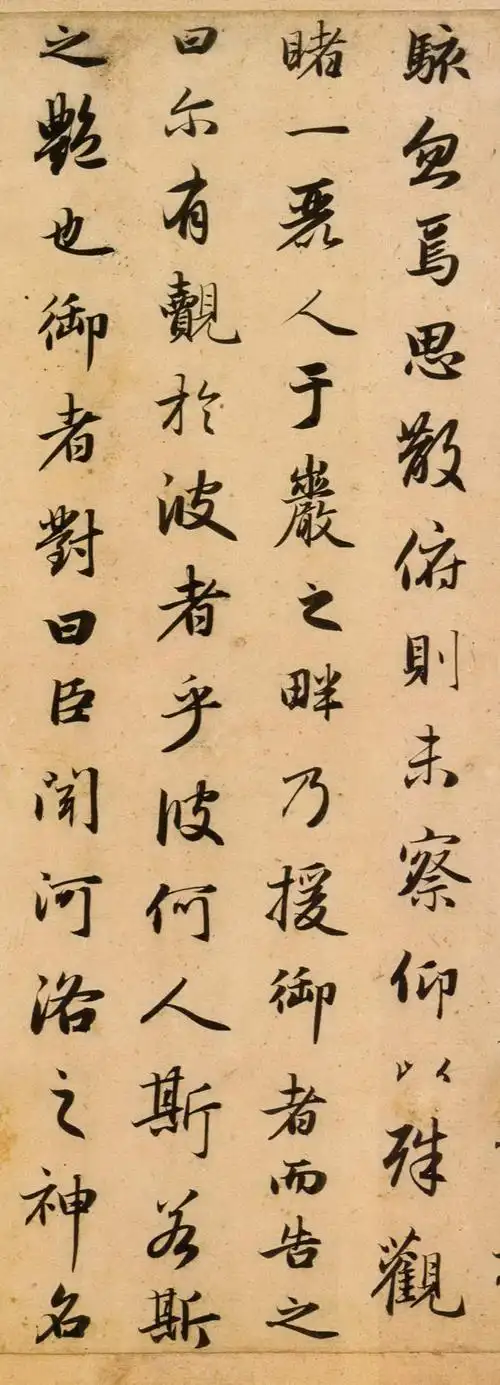 駭忽焉思散俯則未察仰以殊觀
睹一麗人于巖之畔乃援御者而告之
曰尔有覿於彼者乎彼何人斯若斯
之艷也御者對曰臣聞河洛之神名